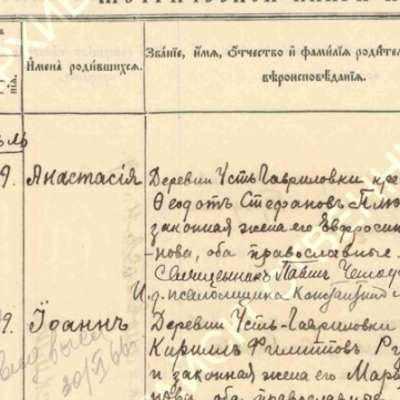 Имена родившихся.
Званіе, имя, отчество и фамилія родител
вѣроисповѣданія.
9. Анастасія
Деревни Усть-Гавриловки кре
Ѳеодотъ Стефановъ Плю
законная жена его Евфросин
нова, оба православные
Священникъ Павелъ
И. д. псаломщика Константин
9. Іоаннъ
Деревни Усть-Гавриловки
Кириллъ Филипповъ Ру
и законная жена его Мар
нова, оба православные
30/VI 66